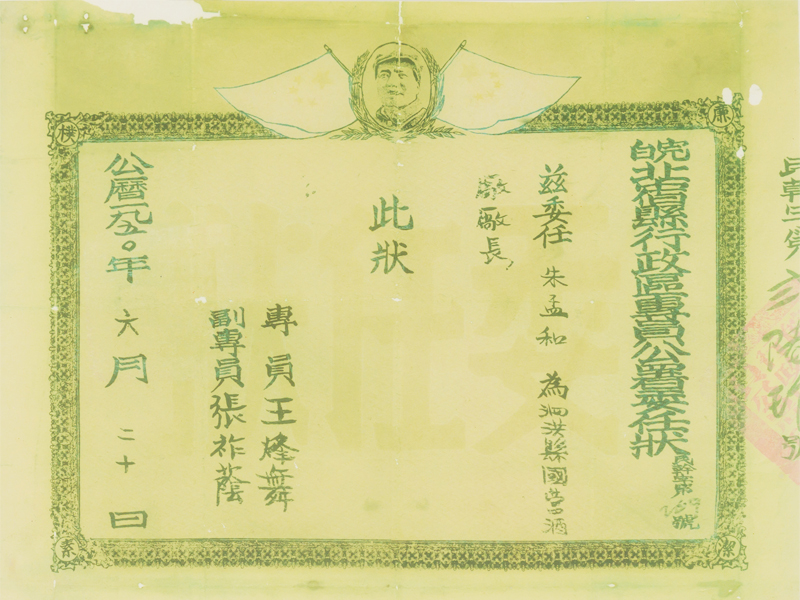 廉
潔
樸
素
皖北宿縣行政區專員公署委任狀
民幹字第 號
茲委任 朱孟和 為泗洪縣國营酒
廠廠長,
此狀
專員王烽舞
副專員張祚蔭
公曆一九五〇年六月二十日